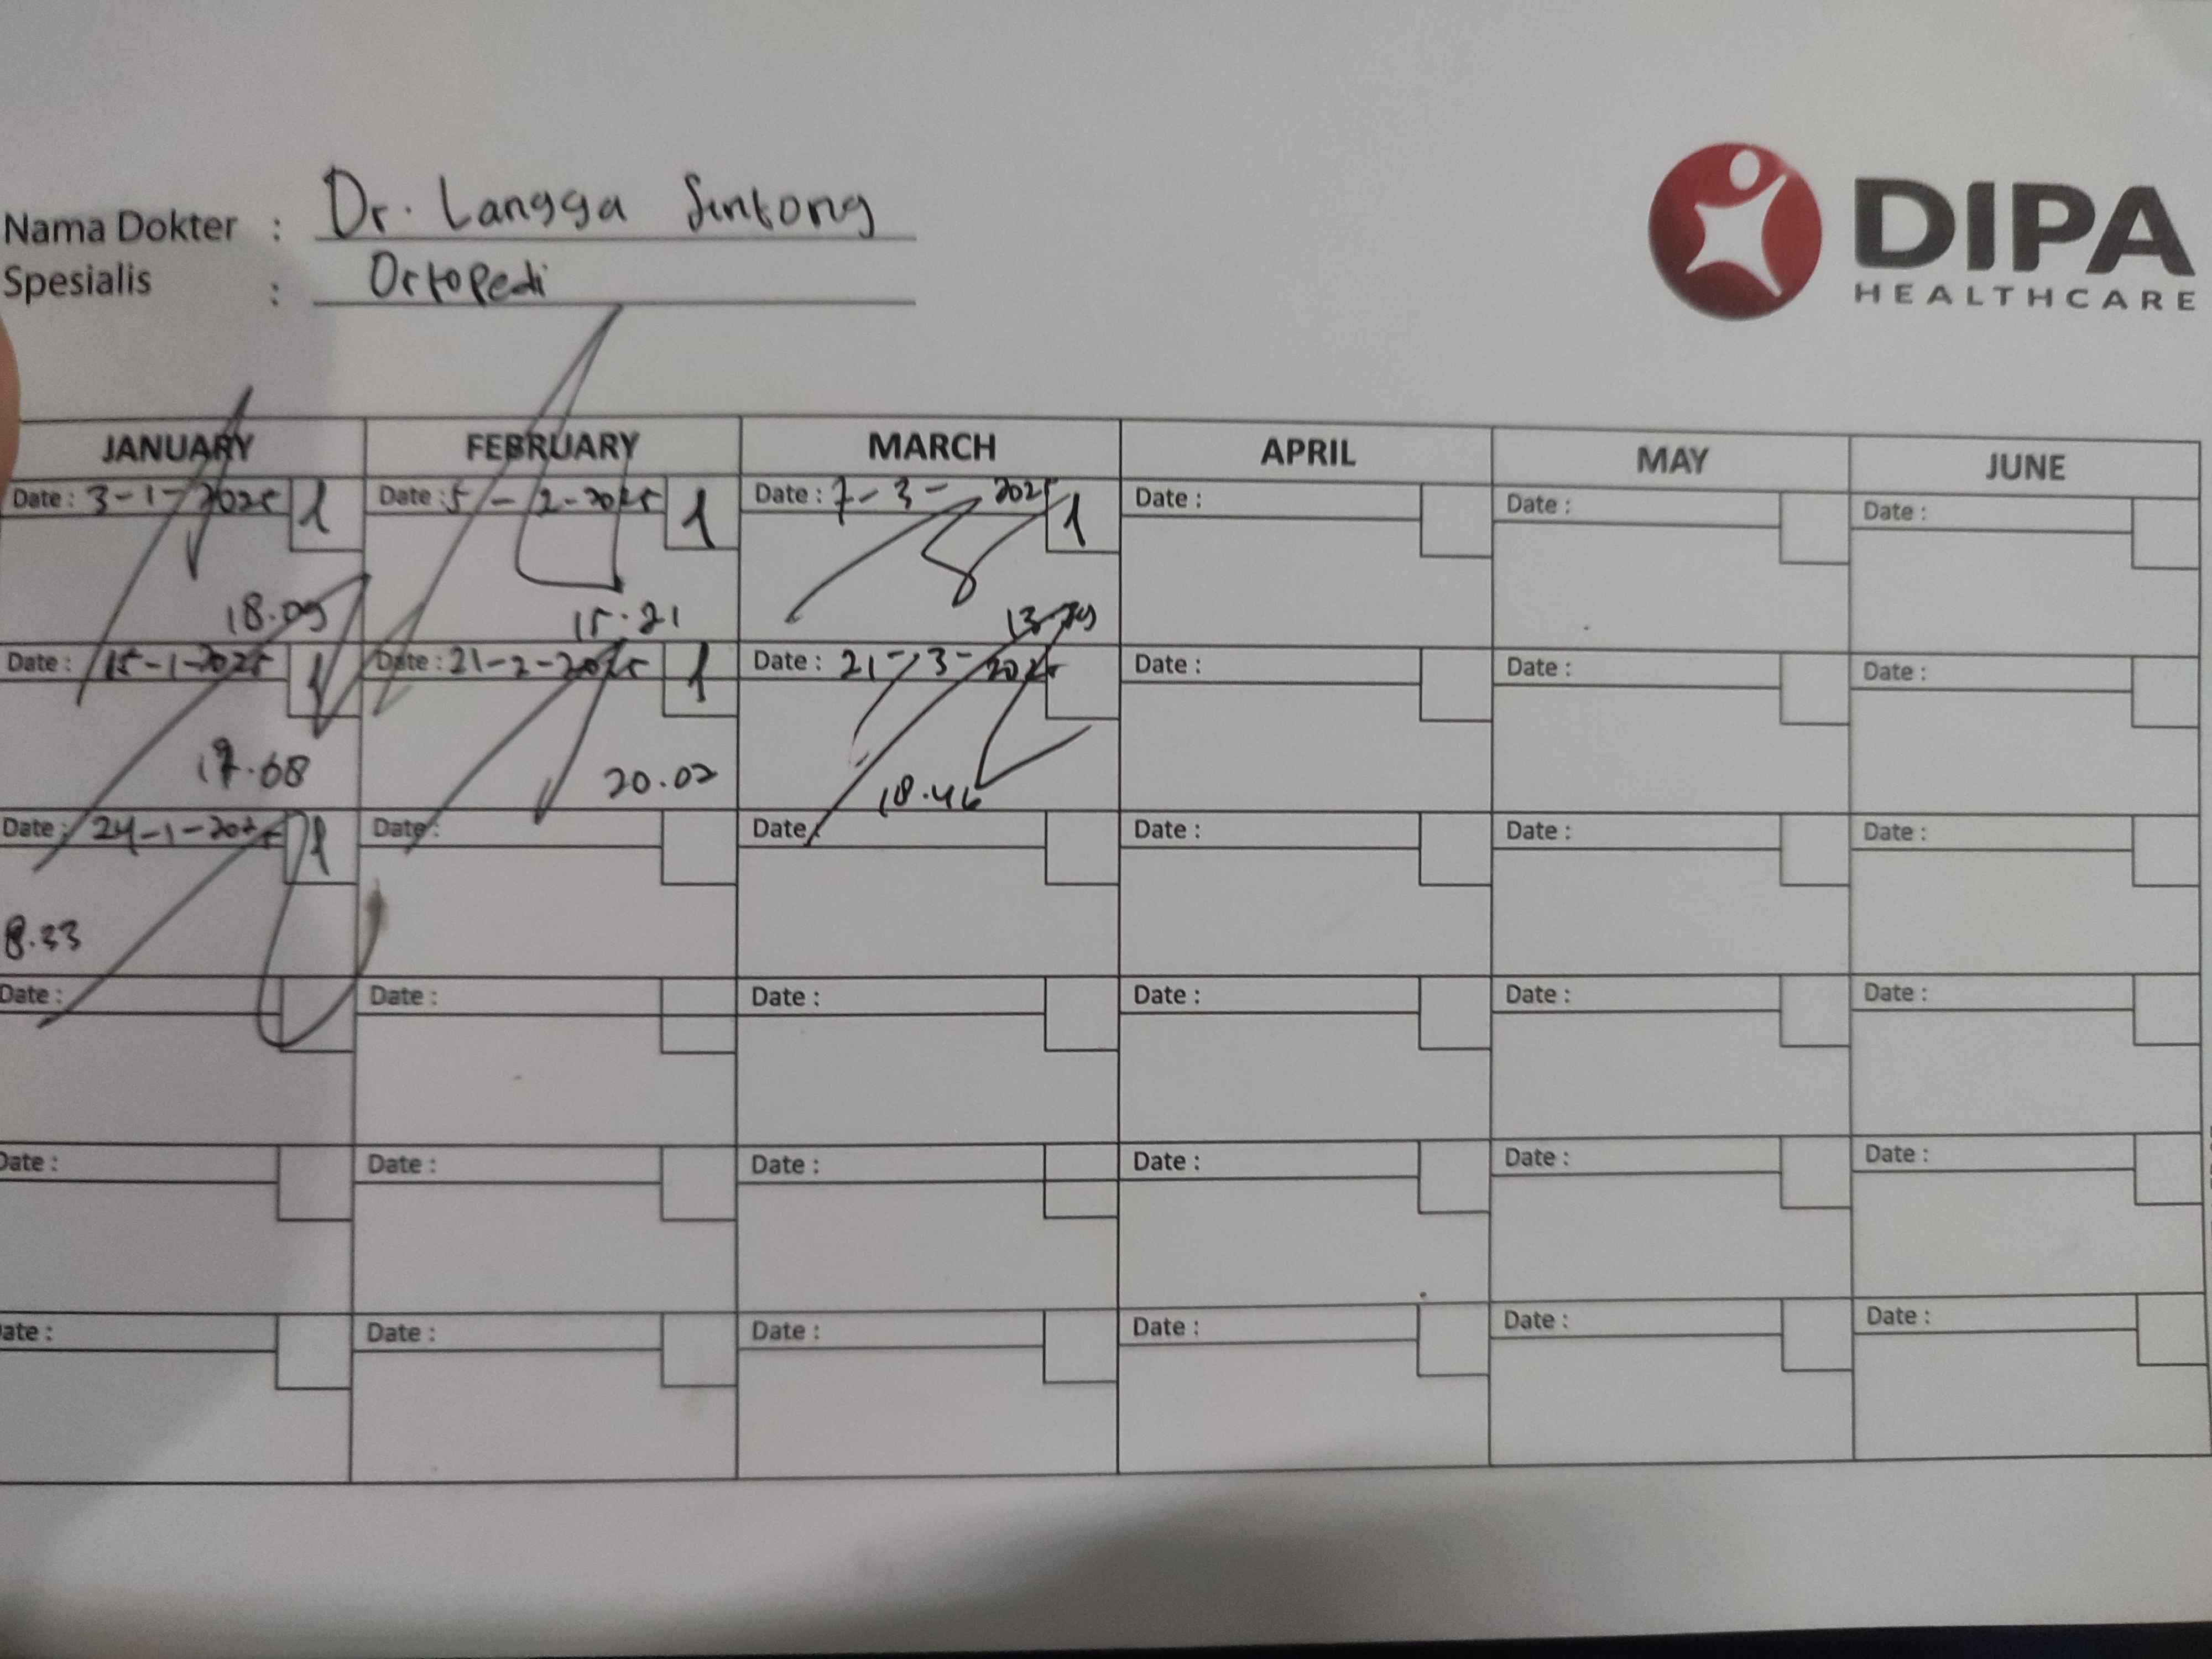 Nama Dokter : Dr. Langga Sintong
Spesialis : Ortopedi
DIPA
HEALTHCARE
JANUARY FEBRUARY MARCH APRIL MAY JUNE
Date : 3-1-2025 1 Date : 5-2-2025 1 Date : 7-3-2025 1 Date : Date : Date :
18.09 15.21
Date : 15-1-2025 1 Date : 21-2-2025 1 Date : 21-3-2025 Date : Date : Date :
17.68 20.02 18.46
Date : 24-1-2025 1 Date : Date : Date : Date : Date :
8.33
Date : Date : Date : Date : Date : Date :
Date : Date : Date : Date : Date : Date :
ate : Date : Date : Date : Date : Date :